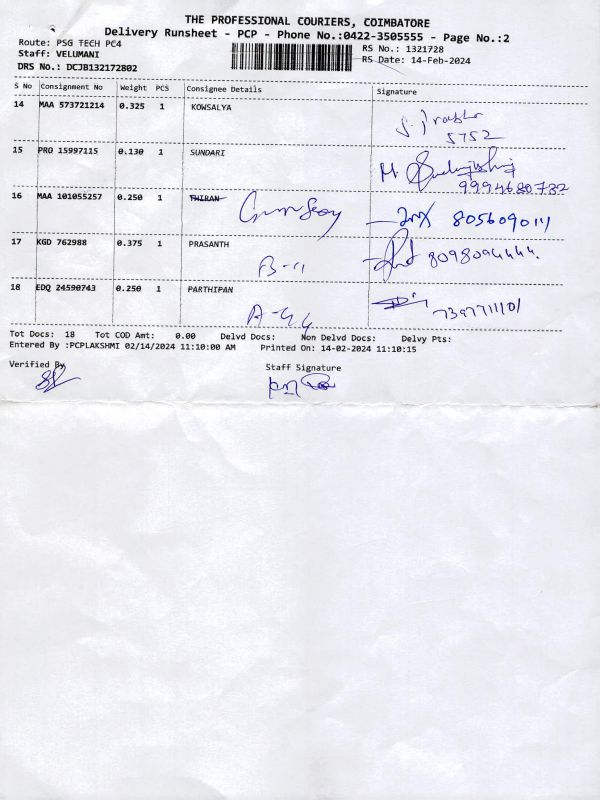 THE PROFESSIONAL COURIERS, COIMBATORE
Delivery Runsheet - PCP - Phone No.:0422-3505555 - Page No.:2
Route: PSG TECH PC4
RS No.: 1321728
Staff: VELUMANI
RS Date: 14-Feb-2024
DRS No.: DCJB132172802
S No Consignment No Weight PCS Consignee Details Signature
14 MAA 573721214 0.325 1 KOWSALYA
5752
15 PRO 15997115 0.130 1 SUNDARI
9994680732
16 MAA 101055257 0.250 1 THIRAN 8056090111
17 KGD 762988 0.375 1 PRASANTH 8098094444.
B-11
18 EDQ 24590743 0.250 1 PARTHIPAN 7397711101
A-44
Tot Docs: 18 Tot COD Amt: 0.00 Delvd Docs: Non Delvd Docs: Delvy Pts:
Entered By :PCPLAKSHMI 02/14/2024 11:10:00 AM Printed On: 14-02-2024 11:10:15
Verified By Staff Signature